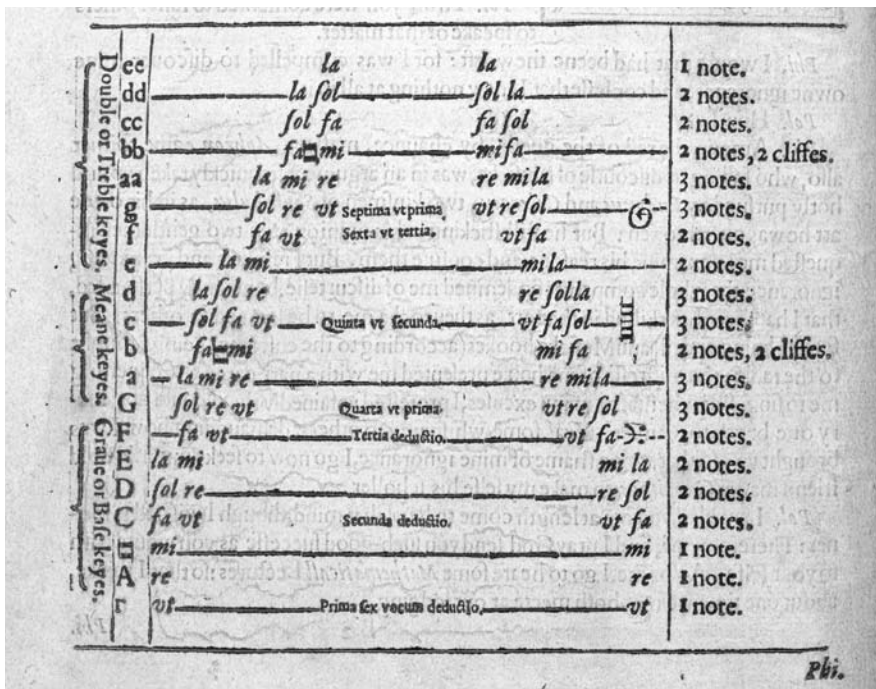 ee la la 1 note.
dd la ſol ſol la 2 notes.
cc ſol fa fa ſol 2 notes.
bb fa mi mi fa 2 notes, 2 cliffes.
aa la mi re re mi la 3 notes.
g ſol re vt Septima vt prima vt re ſol 3 notes.
f fa vt Sexta vt tertia. vt fa 2 notes.
e la mi mi la 2 notes.
d la ſol re re ſol la 3 notes.
c ſol fa vt Quinta vt ſecunda. vt fa ſol 3 notes.
b fa mi mi fa 2 notes, 2 cliffes.
a la mi re re mi la 3 notes.
G ſol re vt Quarta vt prima. vt re ſol 3 notes.
F fa vt Tertia deductio. vt fa 2 notes.
E la mi mi la 2 notes.
D ſol re re ſol 2 notes.
C fa vt Secunda deductio. vt fa 2 notes.
♮ mi mi 1 note.
A re re 1 note.
Γ vt Prima ſex vocum deductio. vt 1 note.
Double or Treble keyes.
Meane keyes.
Graue or Baſe keyes.
Phi.